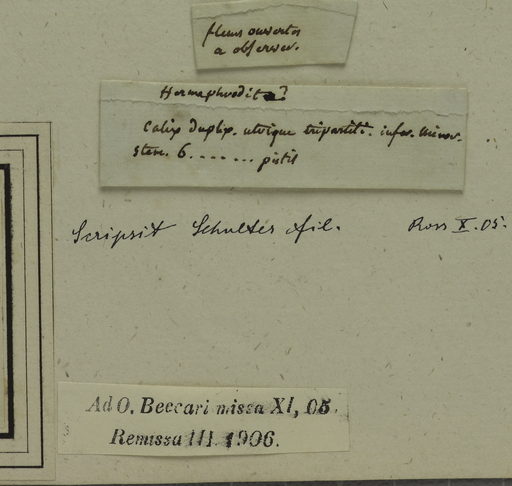 fleurs ouvertes
a observer.
Hermaphrodita?
Calix duplex. utrique tripartiti. infer. minor.
stam. 6. . . . . . . pistil
Scripsit Schultes fil. Ross X. 05.
Ad O. Beccari missa XI, 05.
Remissa III. 1906.